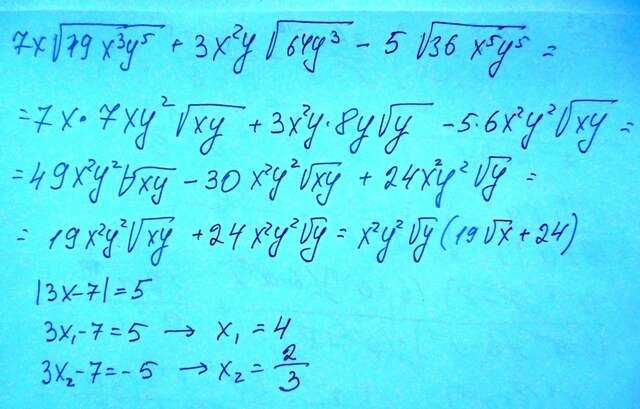 7x√(49x³y⁵) + 3x²y√(64y³) - 5√(36x⁵y⁵) =
= 7x · 7xy²√(xy) + 3x²y · 8y√y - 5·6x²y²√(xy) =
= 49x²y²√(xy) - 30x²y²√(xy) + 24x²y²√y =
= 19x²y²√(xy) + 24x²y²√y = x²y²√y (19√x + 24)
|3x-7| = 5
3x₁-7 = 5 → x₁ = 4
3x₂-7 = -5 → x₂ = 2/3